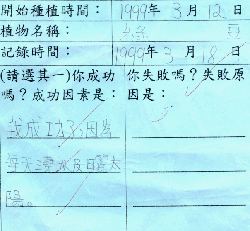 開始種植時間： 1999年 3月 12日
植物名稱： 豆
記錄時間： 1999年 3月 18日
(請選其一)你成功 你失敗嗎？失敗原
嗎？成功因素是： 因是：
我成功了，因為
每天澆水及日曬太
陽。